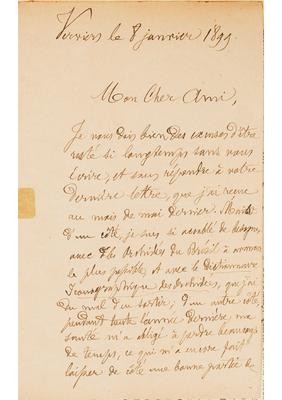 Verviers le 8 janvier 1899.
Mon Cher Ami,
Je vous dois bien des excuses d'être
resté si longtemps sans vous
écrire, et sans répondre à votre
dernière lettre, que j'ai reçue
au mois de mai dernier. Mais
d'un côté, je suis si accablé de besogne,
avec les Orchidées du Brésil à
le plus possible et avec le Dictionnaire
Iconographique des Orchidées, que j'ai
du mal d'en sortir; d'un autre côté
pendant toute l'année dernière ma
santé m'a obligé à perdre beaucoup
de temps, ce qui m'a encore fait
laisser de côté une bonne partie de